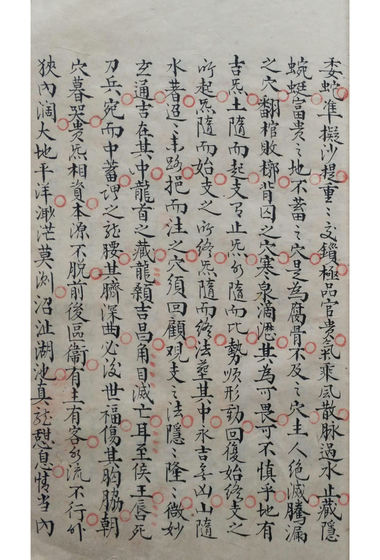 委蛇準擬沙堤重〻交鎖極品官貴氣乘風散脈過水止藏隱
蜿蜒富貴之地不蓄之穴是為腐骨不及之穴主人絕滅騰漏
之穴翻棺敗槨背囚之穴寒泉滴瀝其為可畏可不慎乎地有
吉炁土隨而起支有止炁水隨而比勢順形動回復始終支之
所起炁隨而始支之所終炁隨而終法塟其中永吉無凶山隨
水著迢〻来路挹而注之穴須回顧观支之法隱〻隆〻微妙
玄通吉在其中龍首之藏龍顙吉昌角目滅亡耳至侯王唇死
刀兵宛而中蓄謂之龍腰其臍深曲必後世福傷其胸脇朝
穴暮哭貴炁相資本源不脫前後區衛有主有客水流不行外
狹內闊大地平洋渺茫莫測沼沚湖池真龍憇息情當內